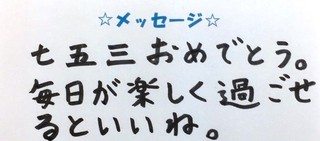 ☆メッセージ☆
七五三おめでとう。
毎日が楽しく過ごせ
るといいね。